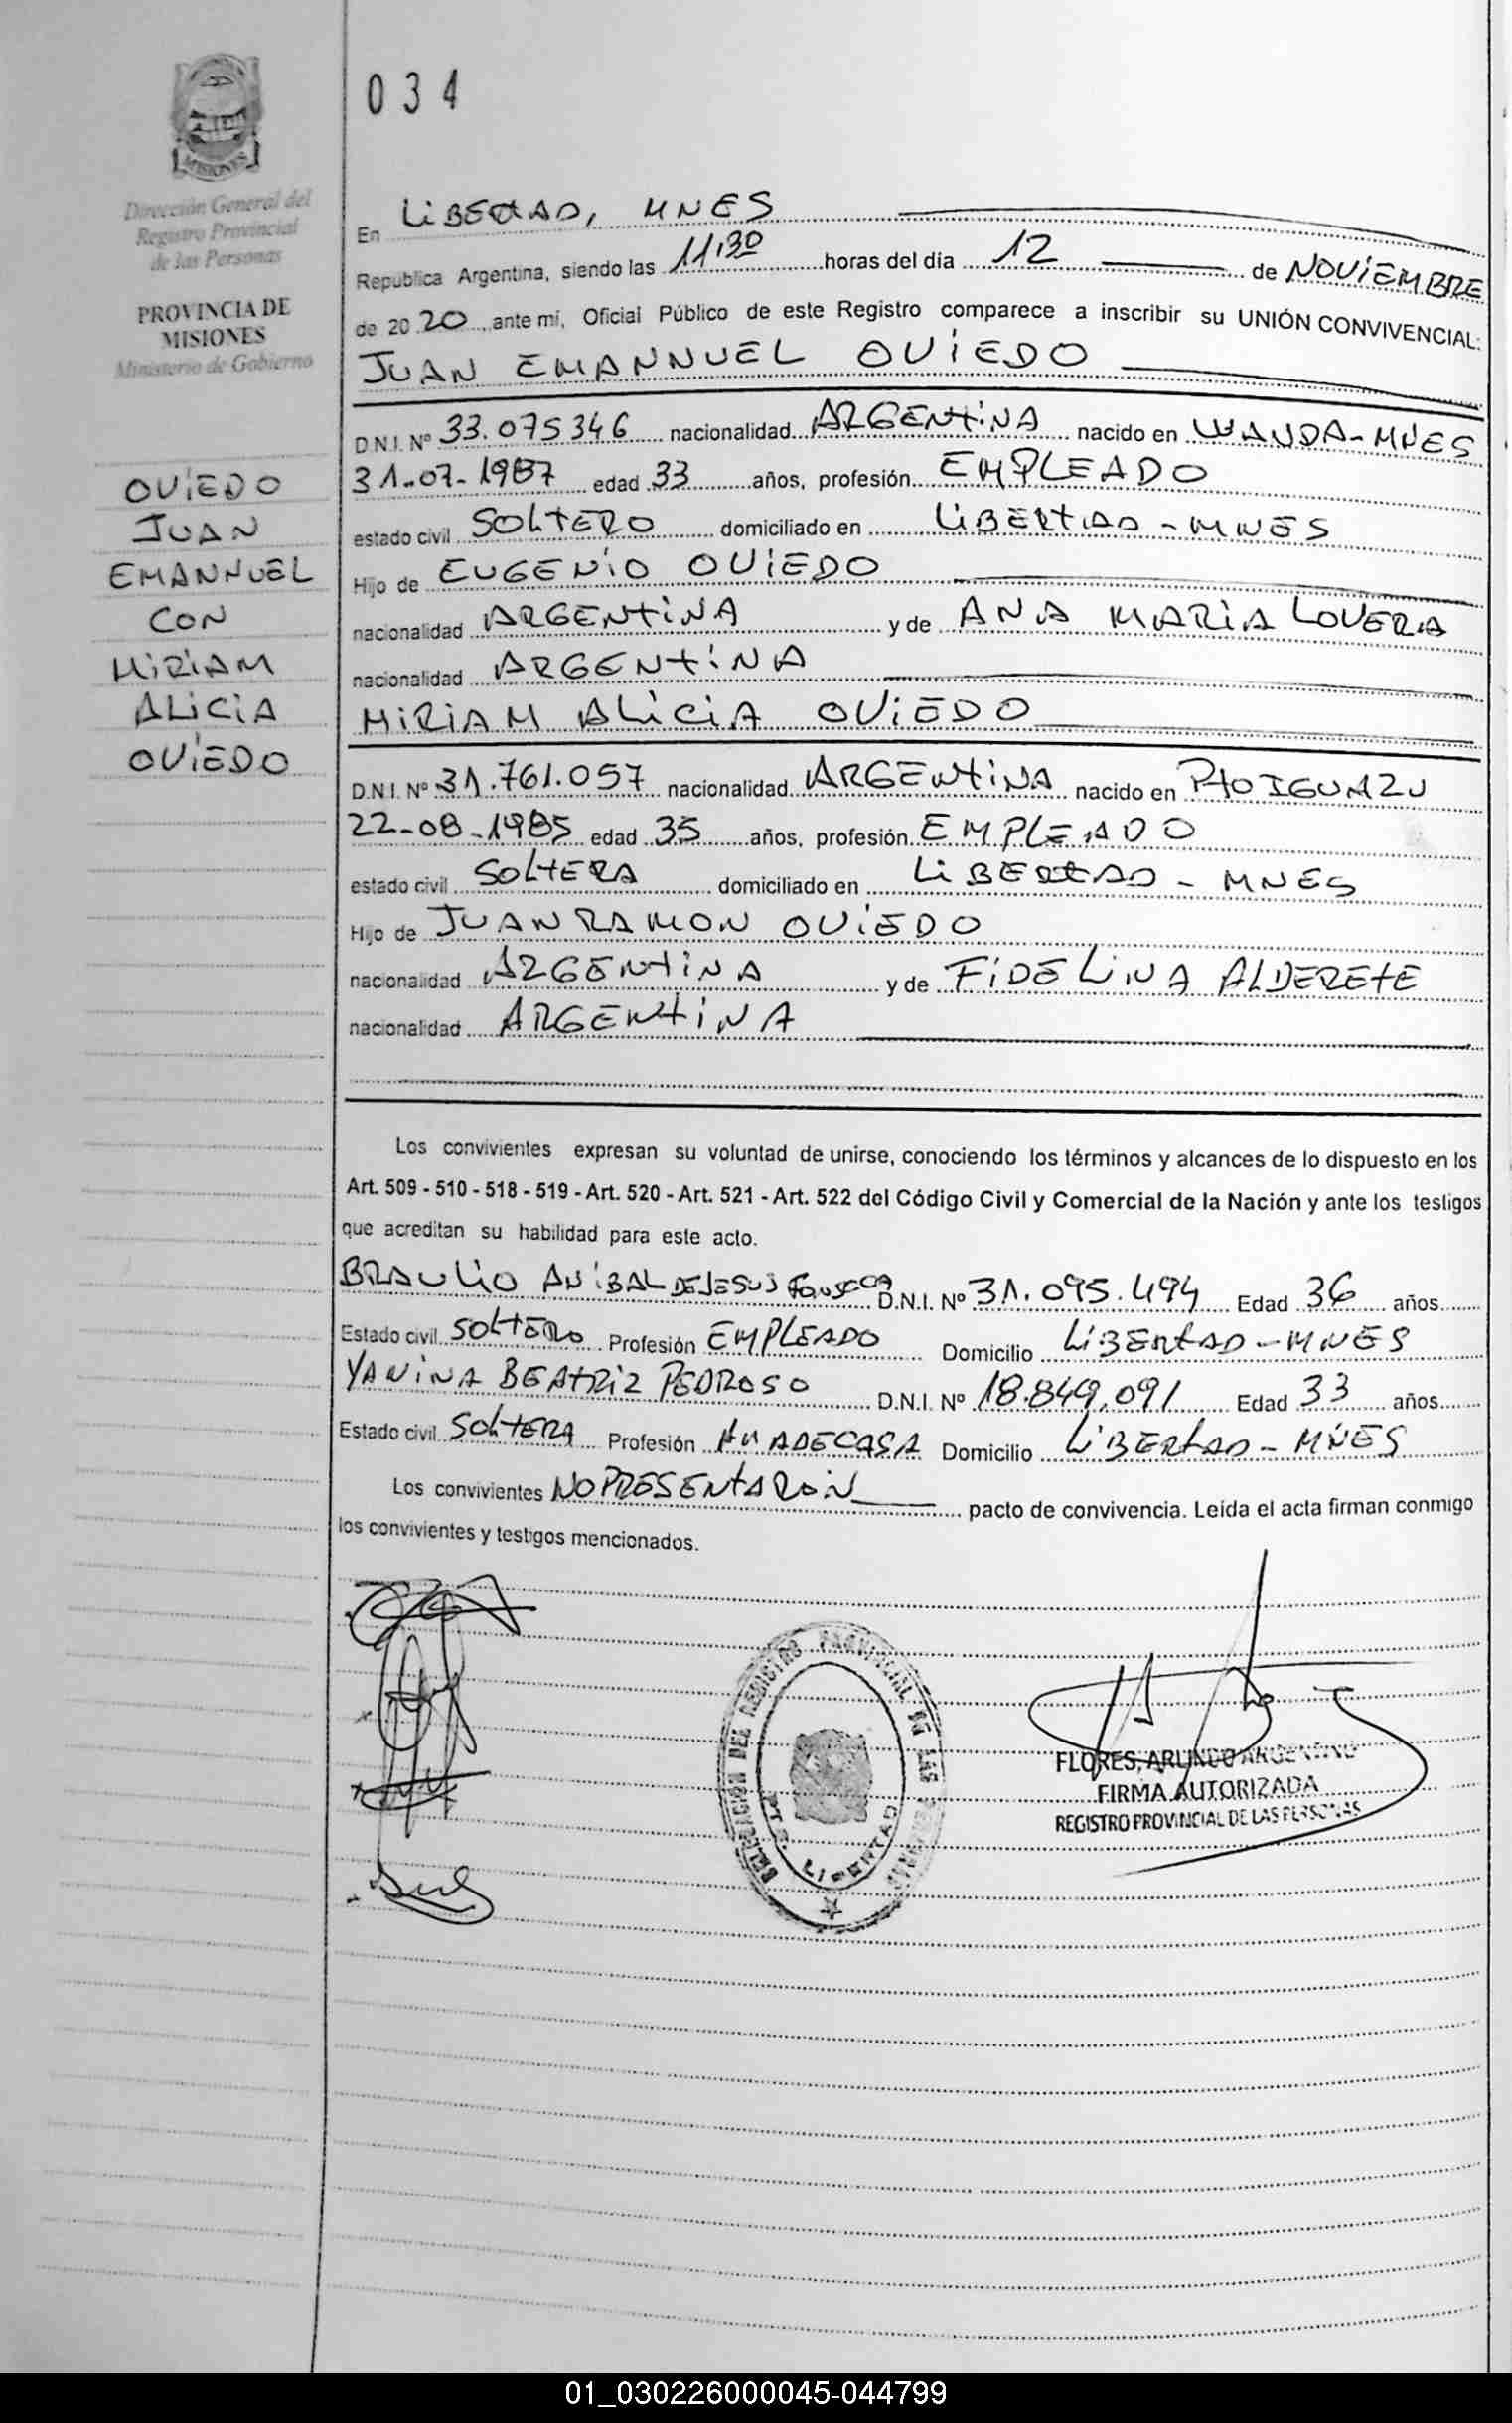 034
MISIONES
Dirección General del
Registro Provincial
de las Personas
PROVINCIA DE
MISIONES
Ministerio de Gobierno
OVIEDO
JUAN
EMANNUEL
CON
MIRIAM
ALICIA
OVIEDO
En LIBERTAD, MNES
Republica Argentina, siendo las 11:30 horas del día 12 de NOVIEMBRE
de 2020, ante mí, Oficial Público de este Registro comparece a inscribir su UNIÓN CONVIVENCIAL:
JUAN EMANNUEL OVIEDO
D.N.I. Nº 33.075346 nacionalidad ARGENTINA nacido en WANDA-MNES
31-07-1987 edad 33 años, profesión EMPLEADO
estado civil SOLTERO domiciliado en LIBERTAD - MNES
Hijo de EUGENIO OVIEDO
nacionalidad ARGENTINA y de ANA MARIA LOVERA
nacionalidad ARGENTINA
MIRIAM ALICIA OVIEDO
D.N.I. Nº 31.761.057 nacionalidad ARGENTINA nacido en PTO IGUAZU
22-08-1985 edad 35 años, profesión EMPLEADO
estado civil SOLTERA domiciliado en LIBERTAD - MNES
Hijo de JUAN RAMON OVIEDO
nacionalidad ARGENTINA y de FIDELINA ALDERETE
nacionalidad ARGENTINA
Los convivientes expresan su voluntad de unirse, conociendo los términos y alcances de lo dispuesto en los
Art. 509 - 510 - 518 - 519 - Art. 520 - Art. 521 - Art. 522 del Código Civil y Comercial de la Nación y ante los testigos
que acreditan su habilidad para este acto.
BRAULIO ANIBAL DE JESUS FONSECA D.N.I. Nº 31.095.494 Edad 36 años
Estado civil SOLTERO Profesión EMPLEADO Domicilio LIBERTAD-MNES
YANINA BEATRIZ PEDROSO D.N.I. Nº 18.849.091 Edad 33 años
Estado civil SOLTERA Profesión AMA DE CASA Domicilio LIBERTAD - MNES
Los convivientes NO PRESENTARON pacto de convivencia. Leída el acta firman conmigo
los convivientes y testigos mencionados.
DELEGACION DEL REGISTRO PROVINCIAL DE LAS PERSONAS
PTO. LIBERTAD
FLORES, ARLINDO ARGENTINO
FIRMA AUTORIZADA
REGISTRO PROVINCIAL DE LAS PERSONAS
01_030226000045-044799